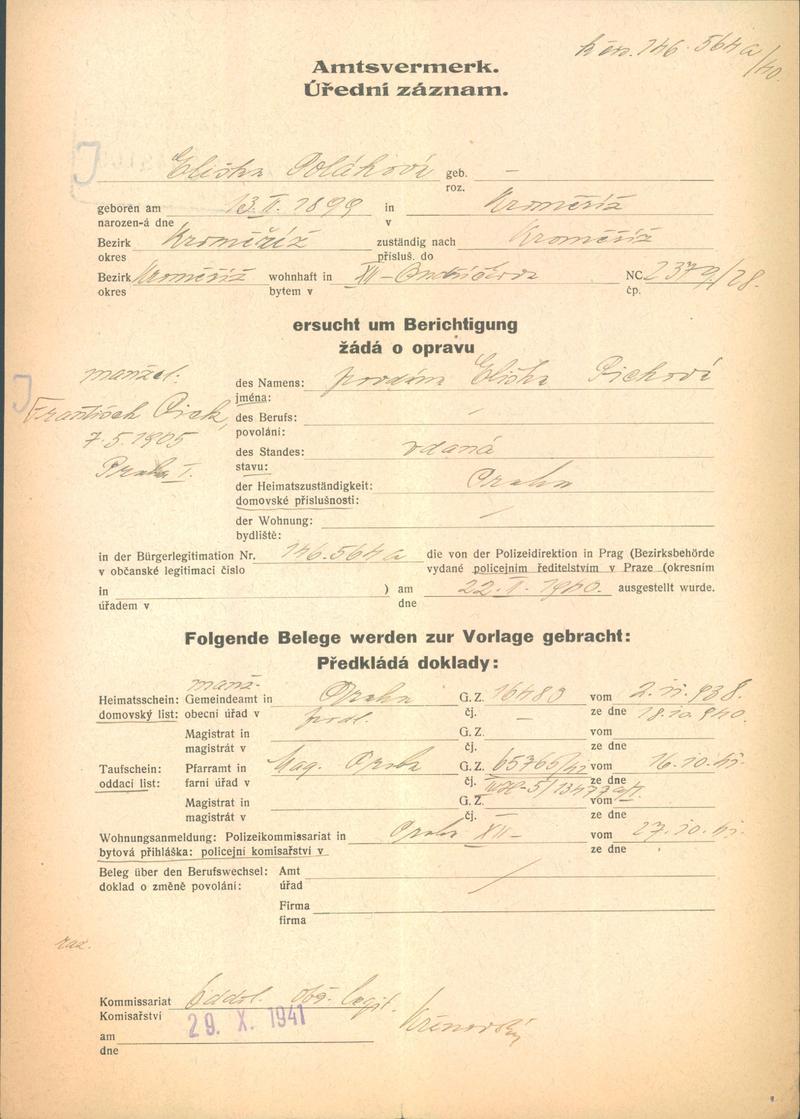 k čís. 146.564a/40
Amtsvermerk.
Úřední záznam.
J
Eliška Poláková geb. –
roz.
geboren am 13.II.1899 in Kroměříž
narozen-á dne v
Bezirk Kroměříž zuständig nach Kroměříž
okres přísluš. do
Bezirk Kroměříž wohnhaft in XII – NC. 2379/28.
okres bytem v čp.
ersucht um Berichtigung
žádá o opravu
manžel:
J
František Pick,
7.5.1905
Praha I.
des Namens: provdána Eliška Picková
jména:
des Berufs: –
povolání:
des Standes: vdaná
stavu:
der Heimatszuständigkeit: Praha
domovské příslušnosti:
der Wohnung: –
bydliště:
in der Bürgerlegitimation Nr. 146.564a die von der Polizeidirektion in Prag (Bezirksbehörde
v občanské legitimaci číslo vydané policejním ředitelstvím v Praze (okresním
in ) am 22.I.1940. ausgestellt wurde.
úřadem v dne
Folgende Belege werden zur Vorlage gebracht:
Předkládá doklady:
manž.
Heimatsschein: Gemeindeamt in Praha G. Z. 16483 vom 2.II.938.
domovský list: obecní úřad v prodl. čj. – ze dne 18.10.940.
Magistrat in G. Z. vom
magistrát v čj. ze dne
Taufschein: Pfarramt in Mag. Praha G. Z. 65765/41 vom 16.10.41.
oddací list: farní úřad v čj. ze dne
Magistrat in G. Z. vom
magistrát v čj. ze dne
Wohnungsanmeldung: Polizeikommissariat in Praha XII – vom 27.10.41.
bytová přihláška: policejní komisařství v ze dne
Beleg über den Berufswechsel: Amt
doklad o změně povolání: úřad
Firma
firma
raz.
Kommissariat Odděl. obč. legit.
Komisařství
29. X. 1941
am
dne